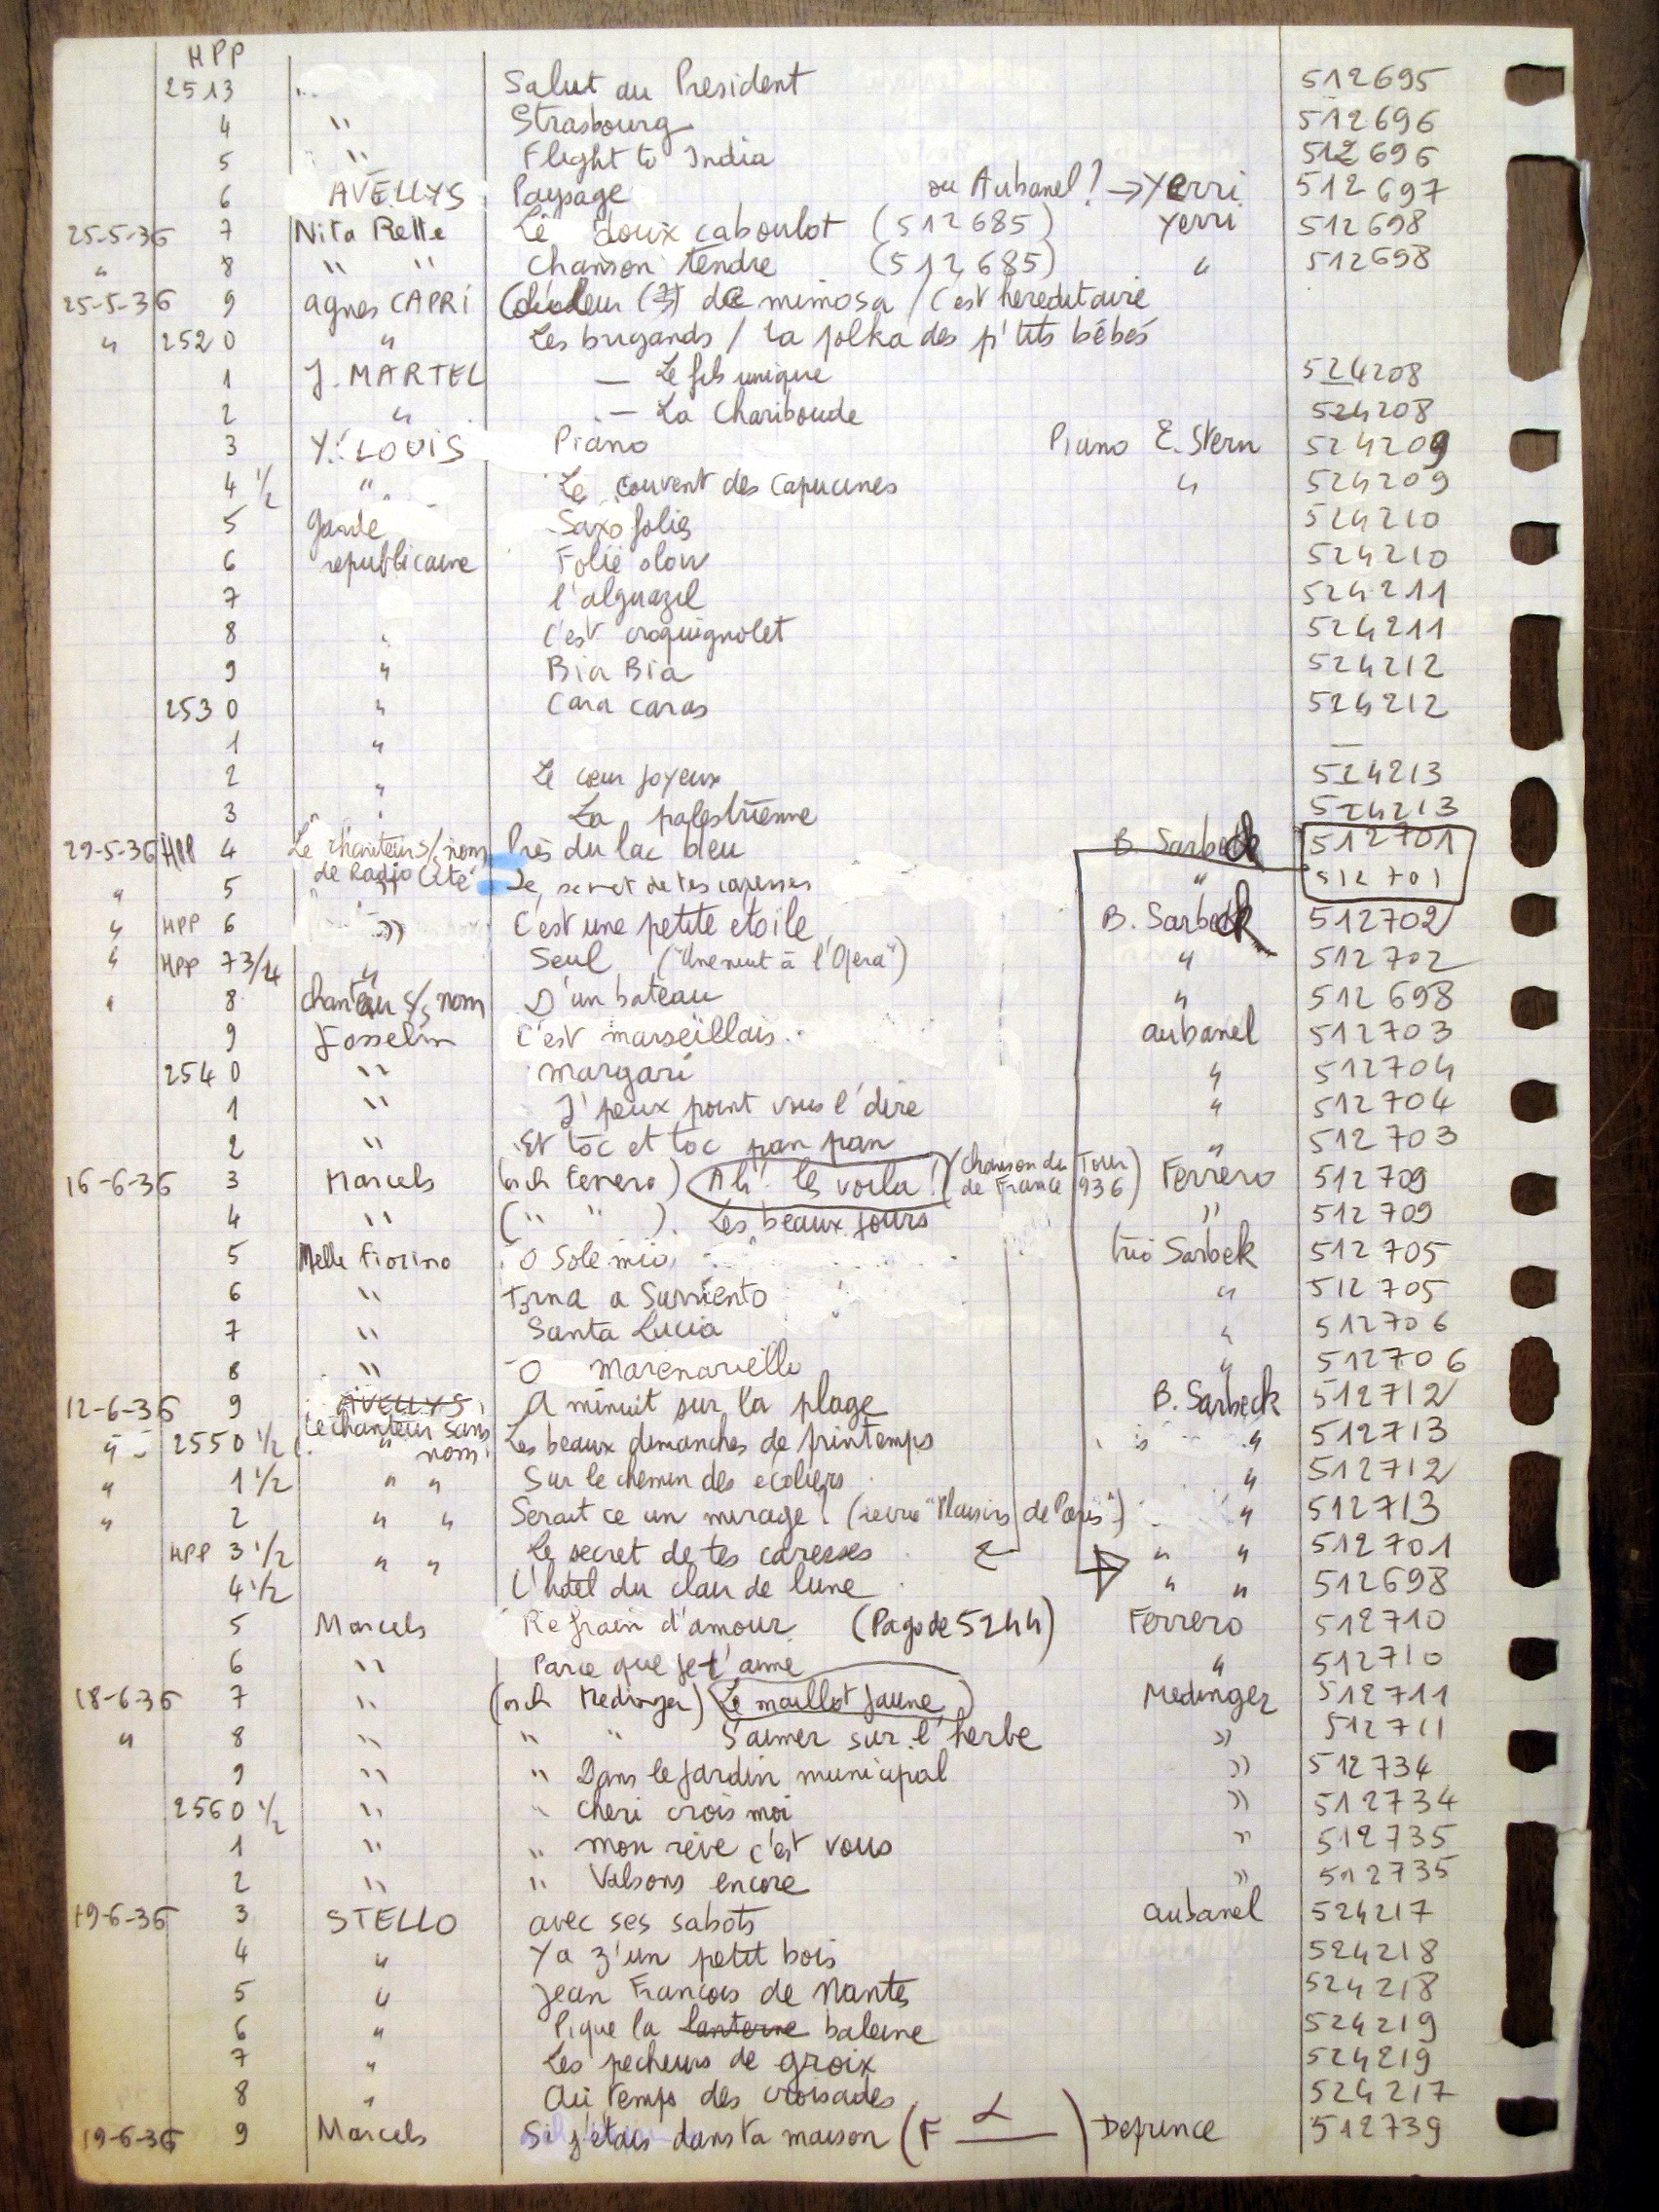 HPP
2513 " Salut au President 512695
4 " Strasbourg 512696
5 " Flight to India 512696
6 AVELLYS Paysage ou Aubanel? → Yerri 512697
25-5-36 7 Nita Rette Le doux caboulot (512685) Yerri 512698
" 8 " " Chanson tendre (512685) " 512698
25-5-36 9 Agnes CAPRI de mimosa / C'est hereditaire
" 2520 " Les brigands / La polka des p'tits bébés
1 J. MARTEL — Le fils unique 524208
2 " — La Chariboude 524208
3 Y. LOUIS Piano Piano E. Stern 524209
4 1/2 " Le couvent des capucines " 524209
5 garde Saxo folies 524210
6 republicaine Folie slow 524210
7 l'alguazil 524211
8 " C'est croquignolet 524211
9 " Bia Bia 524212
2530 " Cara caras 524212
1 " —
2 " Le cœur joyeux 524213
3 " La palestrienne 524213
29-5-36 HPP 4 Le chanteur s/s nom Près du lac bleu B. Sarbeck 512701
" 5 de Radio Cité " Le secret de tes caresses " 512701
" HPP 6 " C'est une petite etoile B. Sarbeck 512702
" HPP 7 3/4 " Seul ("Une nuit à l'Opera") " 512702
" 8 chanteur s/s nom D'un bateau " 512698
9 Josselin C'est marseillais aubanel 512703
2540 " Margari " 512704
1 " J'peux point vous l'dire " 512704
2 " Et toc et toc pan pan " 512703
16-6-36 3 Marcels (orch Ferrero) Ah! les voila! (chanson du Tour de France 1936) Ferrero 512709
4 " (" ") Les beaux jours " 512709
5 Melle Fiorino O Sole mio trio Sarbek 512705
6 " Torna a Surriento " 512705
7 " Santa Lucia " 512706
8 " O Marenariello " 512706
12-6-36 9 AVELLYS A minuit sur la plage B. Sarbeck 512712
" 2550 1/2 Le chanteur sans nom Les beaux dimanches de printemps " 512713
" 1 1/2 " " Sur le chemin des ecoliers " 512712
" 2 " " Serait ce un mirage? (revue "Plaisirs de Paris") " 512713
HPP 3 1/2 " " Le secret de tes caresses ← " " 512701
4 1/2 L'hotel du clair de lune " " 512698
5 Marcels Refrain d'amour (Pagode 5244) Ferrero 512710
6 " Parce que je t'aime " 512710
18-6-36 7 " (orch Medinger) Le maillot jaune Medinger 512711
" 8 " " " S'aimer sur l'herbe " 512711
9 " " Dans le jardin municipal " 512734
2560 1/2 " " cheri crois moi " 512734
1 " " mon rêve c'est vous " 512735
2 " " Valsons encore " 512735
19-6-36 3 STELLO avec ses sabots aubanel 524217
4 " Y a z'un petit bois 524218
5 " Jean Francois de Nantes 524218
6 " Pique la lanterne baleine 524219
7 " Les pecheurs de groix 524219
8 " Au temps des croisades 524217
19-6-36 9 Marcels Si j'étais dans ta maison (F ) Deprince 512739